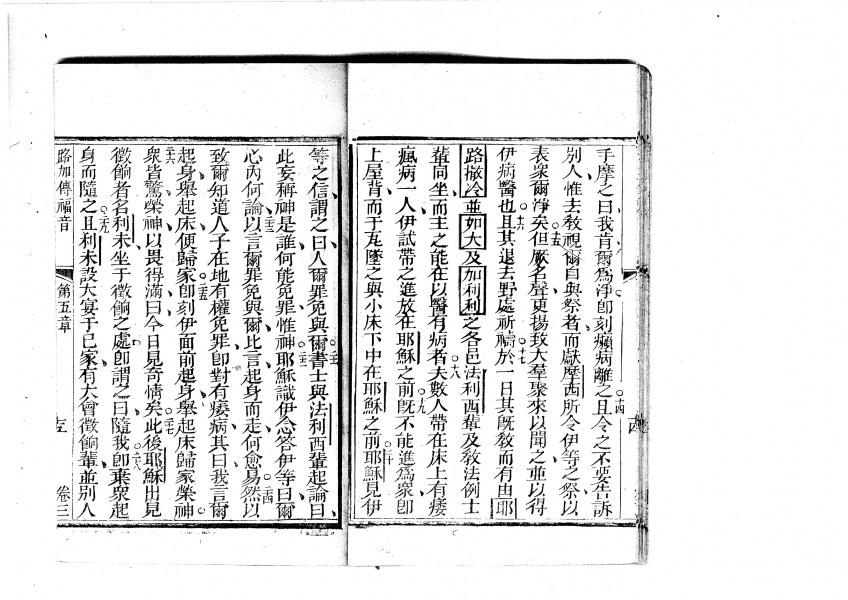 手摩之曰我肯爾爲淨即刻癩病離之且令之不要告訴
別人惟去敎視爾自與祭者而獻摩西所令伊等之祭以
表衆爾淨矣但厥名聲更揚致大羣聚來以聞之並以得
伊病醫也且其退去野處祈禱於一日其既敎而有由耶
路撒冷並如大及加利利之各邑法利西輩及敎法例士
輩同坐而主之能在以醫有病者夫數人帶在床上有痿
瘋病一人伊試帶之進放在耶穌之前既不能進爲衆即
上屋背而于瓦墜之與小床下中在耶穌之前耶穌見伊
等之信謂之曰人爾罪免與爾書士與法利西輩起論曰
此妄稱神是誰何能免罪惟神耶穌識伊念答伊等曰爾
心內何論以言爾罪免與爾比言起身而走何愈易然以
致爾知道人子在地有權免罪即對有痿病其曰我言爾
起身舉起床便歸家即刻伊面前起身舉起床歸家榮神
衆皆驚榮神以畏得滿曰今日見奇情矣此後耶穌出見
徵餉者名利未坐于徵餉之處即謂之曰隨我即棄衆起
身而隨之且利未設大宴于已家有大會徵餉輩並別人
路加傳福音 第五章 卷三